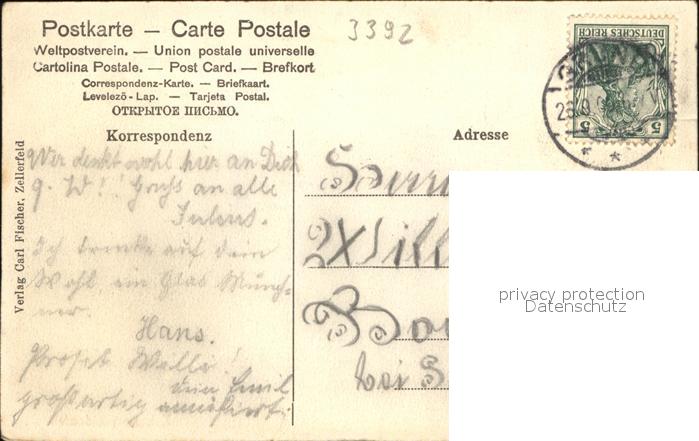 Postkarte — Carte Postale
3392
Weltpostverein. — Union postale universelle
Cartolina Postale. — Post Card. — Brefkort
Correspondenz-Karte. — Briefkaart.
Levelező-Lap. — Tarjeta Postal.
ОТКРЫТОЕ ПИСЬМО.
DEUTSCHES REICH
5 5
Korrespondenz
Adresse
Wer denkt wohl hier an Dich
g. W!! Gruß an alle
Julius.
Ich trinke auf dein
Wohl, ein Glas Münch-
ner.
Hans.
Prosit Willi!
dein Emil
großartig amüsiert.
Herrn
Will
bei
Verlag Carl Fischer, Zellerfeld
privacy protection
Datenschutz